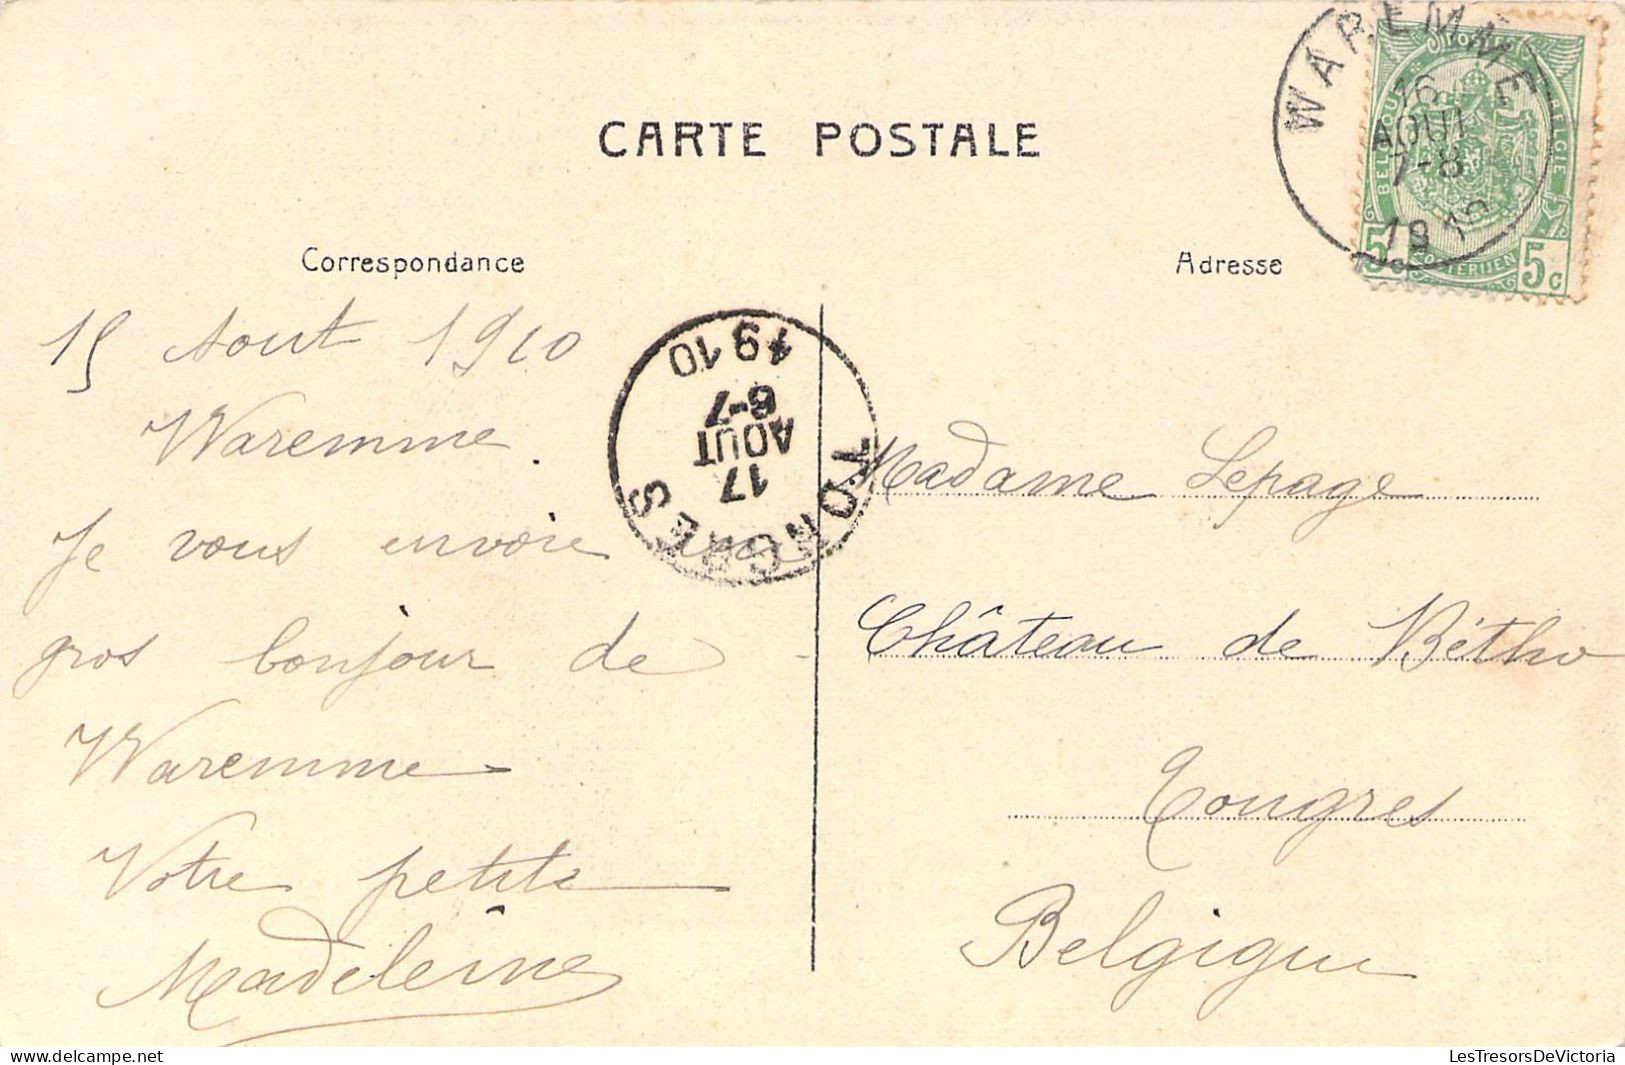 CARTE POSTALE
Correspondance
Adresse
15 Aout 1910
Waremme.
Je vous envoie un
gros bonjour de
Waremme
Votre petite
Madeleine
Madame Lepage
Château de Bétho
Tongres
Belgique
WAREMME
16
AOUT
7-8
1910
POSTES
BELGIQUE
BELGIE
POSTERIJEN
5 5c
TONGRES
17
AOUT
6-7
1910
LesTresorsDeVictoria